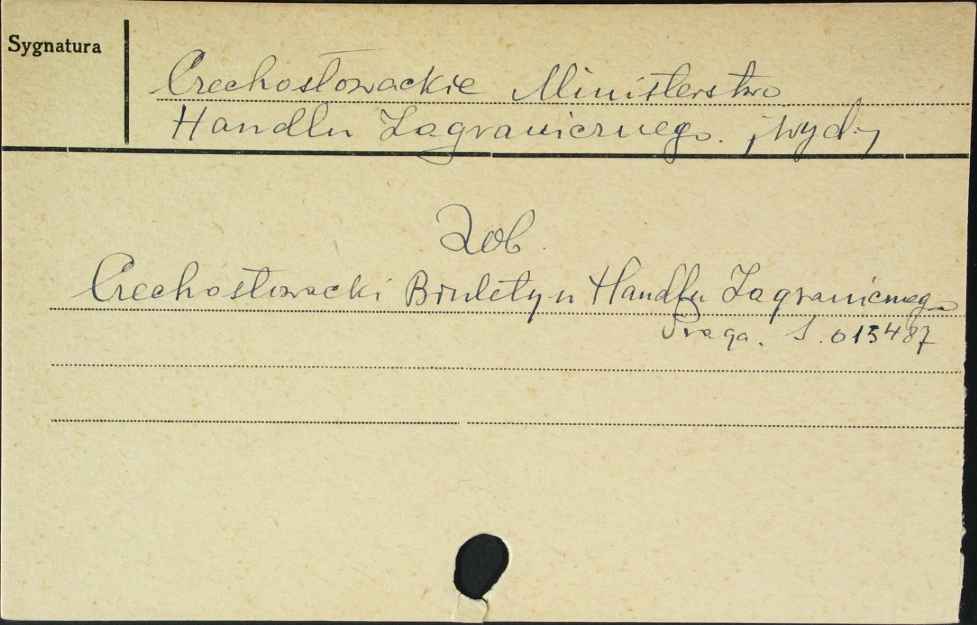 Sygnatura
Czechosłowackie Ministerstwo
Handlu Zagranicznego. /wyd./
Zob.
Czechosłowacki Biuletyn Handlu Zagranicznego
Praga. S. 013487